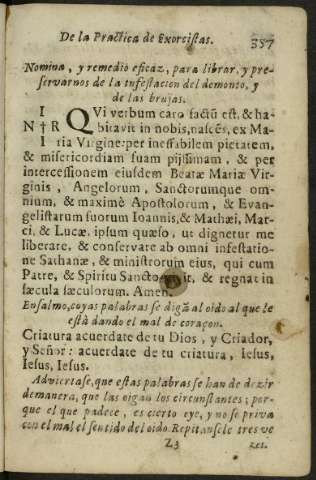 De la Practica de Exorcistas. 357
Nomina, y remedio eficaz, para librar, y pre-
servarnos de la infestacion del demonio, y
de las brujas.
I
N † R
I
QVi verbum caro factū est, & ha-
bitavit in nobis, nascēs, ex Ma-
ria Virgine: per ineffabilem pietatem,
& misericordiam suam pijssimam, & per
intercessionem eiusdem Beatæ Mariæ Vir-
ginis, Angelorum, Sanctorumque om-
nium, & maximè Apostolorum, & Evan-
gelistarum suorum Ioannis, & Mathæi, Mar-
ci, & Lucæ. ipsum quæso, ut dignetur me
liberare, & conservare ab omni infestatio-
ne Sathanæ, & ministrorum eius, qui cum
Patre, & Spiritu Sancto & regnat in
sæcula sæculorum. Amen.
Ensalmo, cuyas palabras se digā al oido al que le
està dando el mal de coraçon.
Criatura acuerdate de tu Dios, y Criador,
y Señor: acuerdate de tu criatura, Iesus,
Iesus, Iesus.
Adviertase, que estas palabras se han de dezir
demanera, que las oigan los circunstantes; por-
que el que padece, es cierto oye, y no se priva
con el mal el sentido del oido. Repitansele tres ve
Z3 zes.